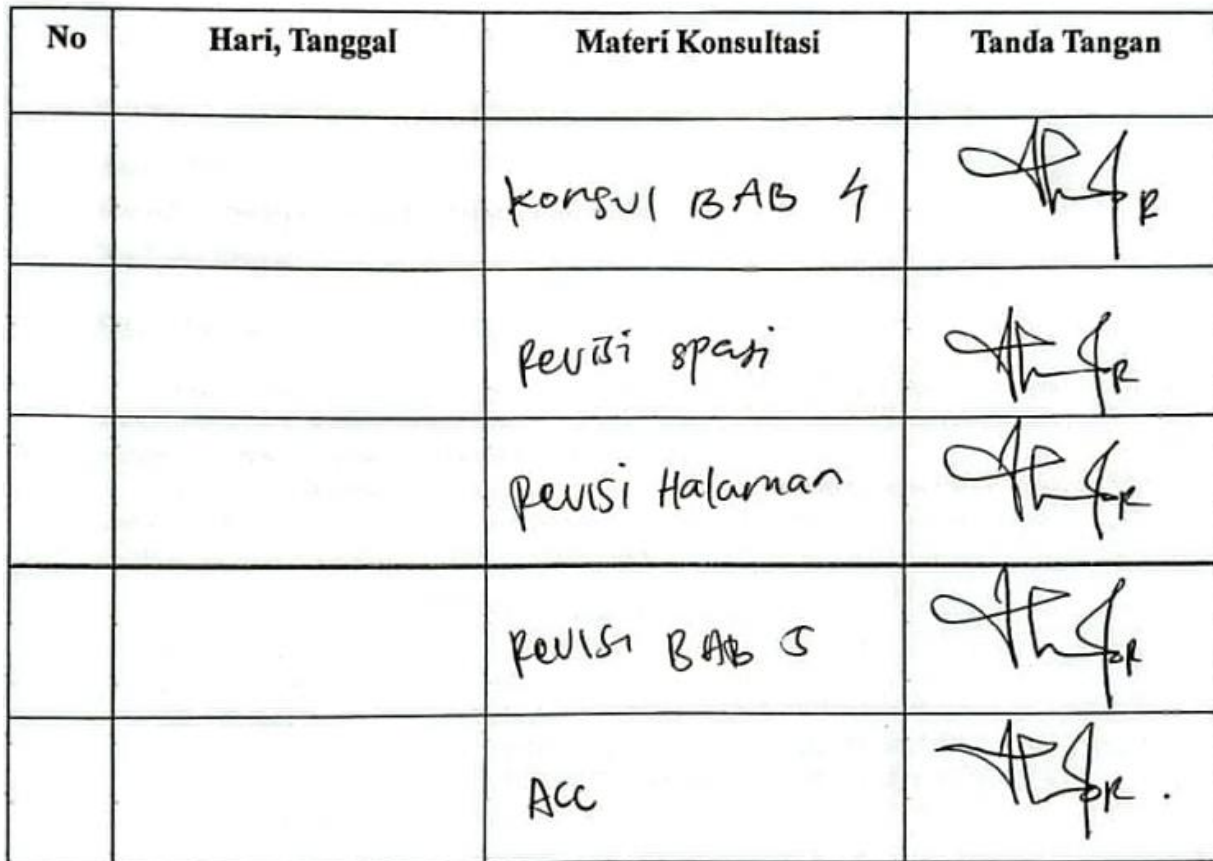 No Hari, Tanggal Materi Konsultasi Tanda Tangan
Konsul BAB 4
Revisi spasi
Revisi Halaman
Revisi BAB 5
ACC